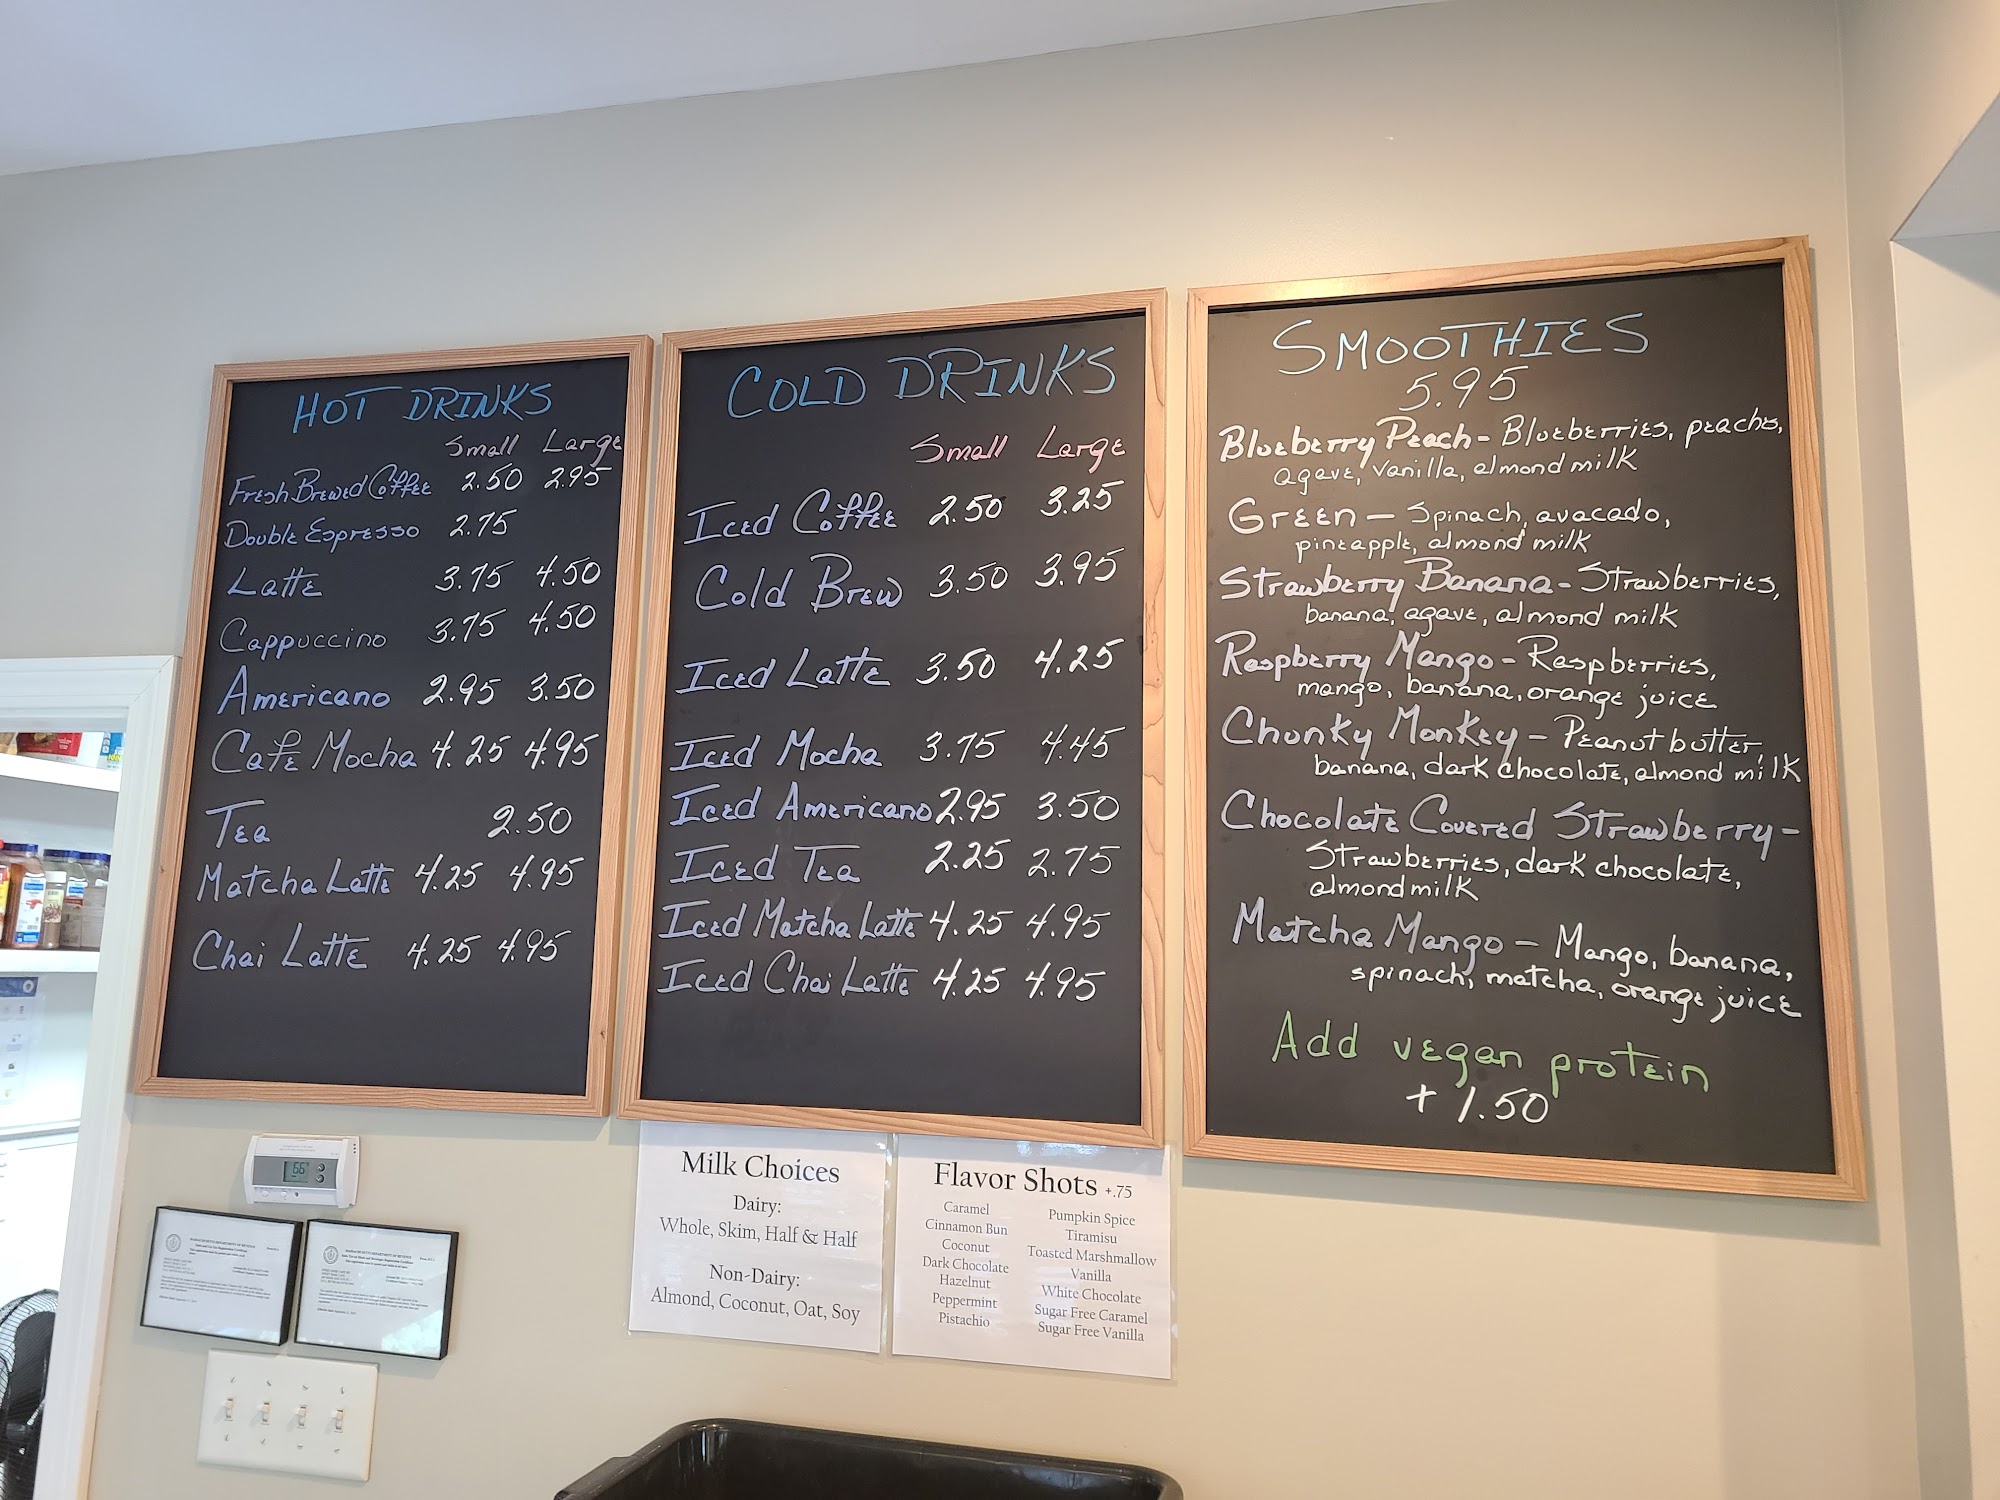 HOT DRINKS
Small Large
Fresh Brewed Coffee 2.50 2.95
Double Espresso 2.75
Latte 3.75 4.50
Cappuccino 3.75 4.50
Americano 2.95 3.50
Cafe Mocha 4.25 4.95
Tea 2.50
Matcha Latte 4.25 4.95
Chai Latte 4.25 4.95
COLD DRINKS
Small Large
Iced Coffee 2.50 3.25
Cold Brew 3.50 3.95
Iced Latte 3.50 4.25
Iced Mocha 3.75 4.45
Iced Americano 2.95 3.50
Iced Tea 2.25 2.75
Iced Matcha Latte 4.25 4.95
Iced Chai Latte 4.25 4.95
SMOOTHIES
5.95
Blueberry Peach - Blueberries, peaches,
agave, vanilla, almond milk
Green - Spinach, avacado,
pineapple, almond milk
Strawberry Banana - Strawberries,
banana, agave, almond milk
Raspberry Mango - Raspberries,
mango, banana, orange juice
Chunky Monkey - Peanut butter,
banana, dark chocolate, almond milk
Chocolate Covered Strawberry -
Strawberries, dark chocolate,
almond milk
Matcha Mango - Mango, banana,
spinach, matcha, orange juice
Add vegan protein
+ 1.50
Milk Choices
Dairy:
Whole, Skim, Half & Half
Non-Dairy:
Almond, Coconut, Oat, Soy
Flavor Shots +.75
Caramel
Cinnamon Bun
Coconut
Dark Chocolate
Hazelnut
Peppermint
Pistachio
Pumpkin Spice
Tiramisu
Toasted Marshmallow
Vanilla
White Chocolate
Sugar Free Caramel
Sugar Free Vanilla
66°
MASSACHUSETTS DEPARTMENT OF REVENUE
MASSACHUSETTS DEPARTMENT OF REVENUE